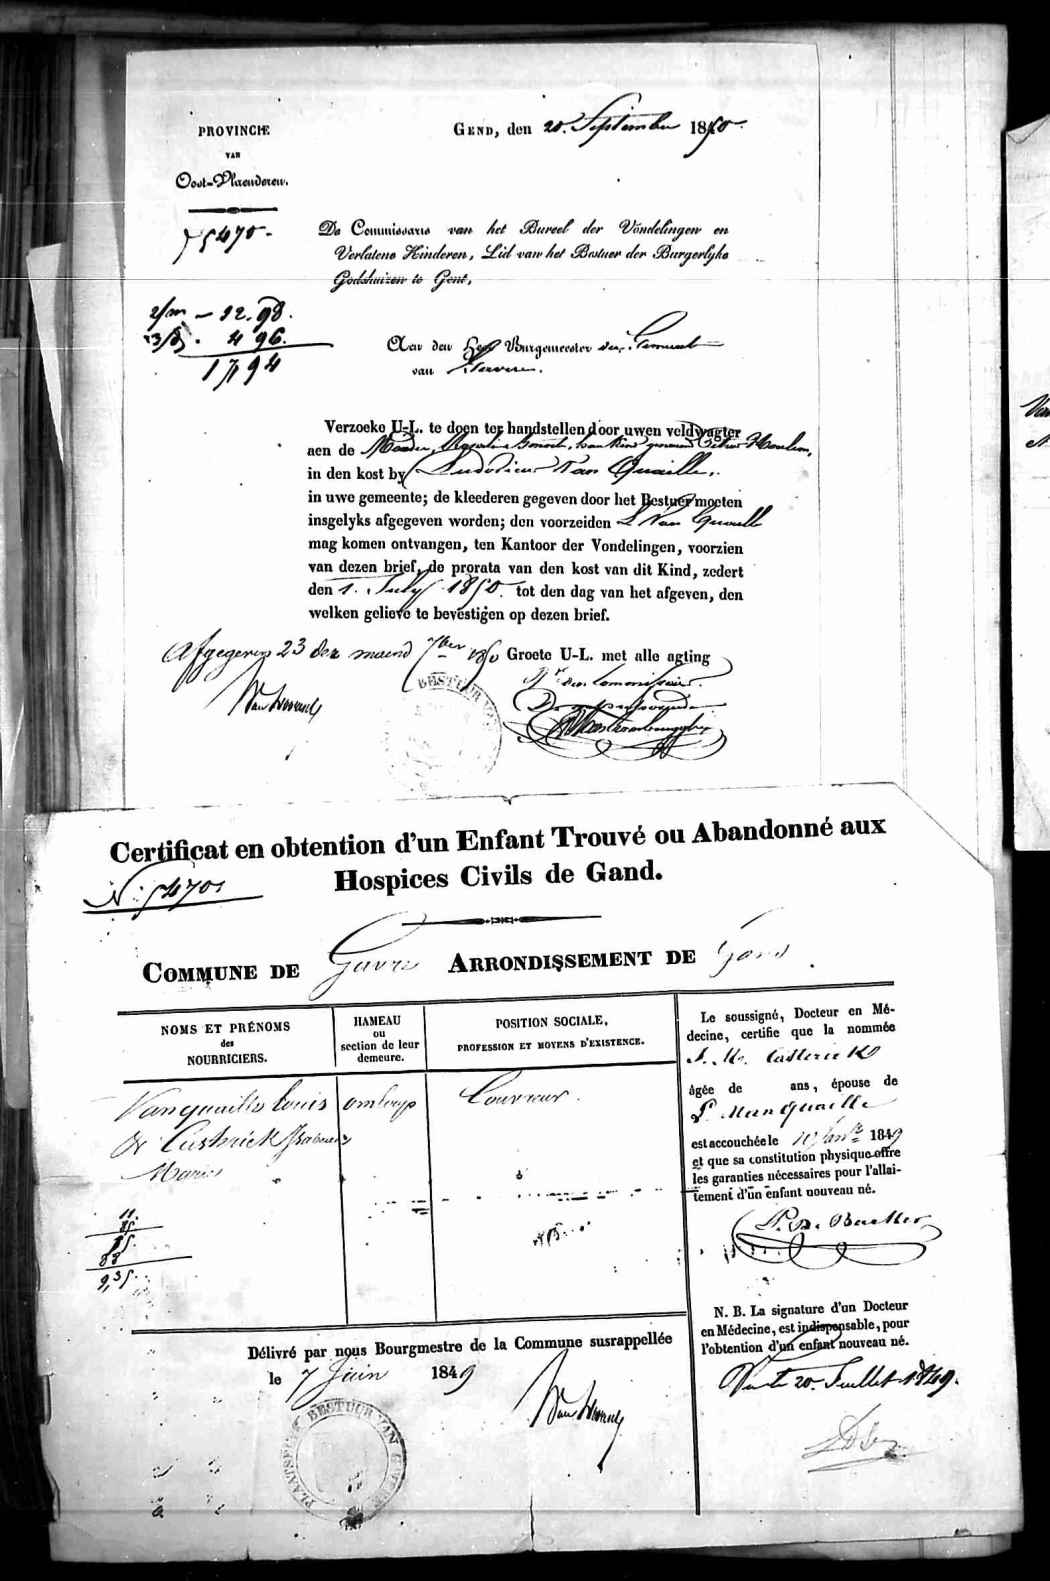 PROVINCIE
VAN
Oost-Vlaenderen.
GEND, den 20. September 1850.
5470.
De Commissaris van het Bureel der Vondelingen en
Verlatene Kinderen, Lid van het Bestuer der Burgerlyke
Godshuizen te Gent,
2/m - 12.98.
4 96.
17 94
Aen den Heer Burgemeester der
van
Verzoeke U-L. te doen ter handstellen door uwen veldwagter
aen de Moeder, van kind genaemd
in den kost by Ludovicus Van Quaille,
in uwe gemeente; de kleederen gegeven door het Bestuer moeten
insgelyks afgegeven worden; den voorzeiden L Van Quaille
mag komen ontvangen, ten Kantoor der Vondelingen, voorzien
van dezen brief, de prorata van den kost van dit Kind, zedert
den 1. July 1850. tot den dag van het afgeven, den
welken gelieve te bevestigen op dezen brief.
Afgegeven 23 der maend 7ber 1850 Groete U-L. met alle agting
BESTUUR VAN
Certificat en obtention d'un Enfant Trouvé ou Abandonné aux
Hospices Civils de Gand.
N: 5470
COMMUNE DE Gavre ARRONDISSEMENT DE Gand.
NOMS ET PRÉNOMS
des
NOURRICIERS.
HAMEAU
ou
section de leur
demeure.
POSITION SOCIALE,
PROFESSION ET MOYENS D'EXISTENCE.
Vanquaille Louis
Couvreur.
Marie
11.
85
2,35.
Le soussigné, Docteur en Mé-
decine, certifie que la nommée
âgée de ans, épouse de
Quaille
est accouchée le 10 1849
et que sa constitution physique offre
les garanties nécessaires pour l'allai-
tement d'un enfant nouveau né.
P. De Backer
N. B. La signature d'un Docteur
en Médecine, est indispensable, pour
l'obtention d'un enfant nouveau né.
20 Juillet 1849.
Délivré par nous Bourgmestre de la Commune susrappellée
le 7 Juin 1849
PLAATSELYK BESTUUR VAN GAVER